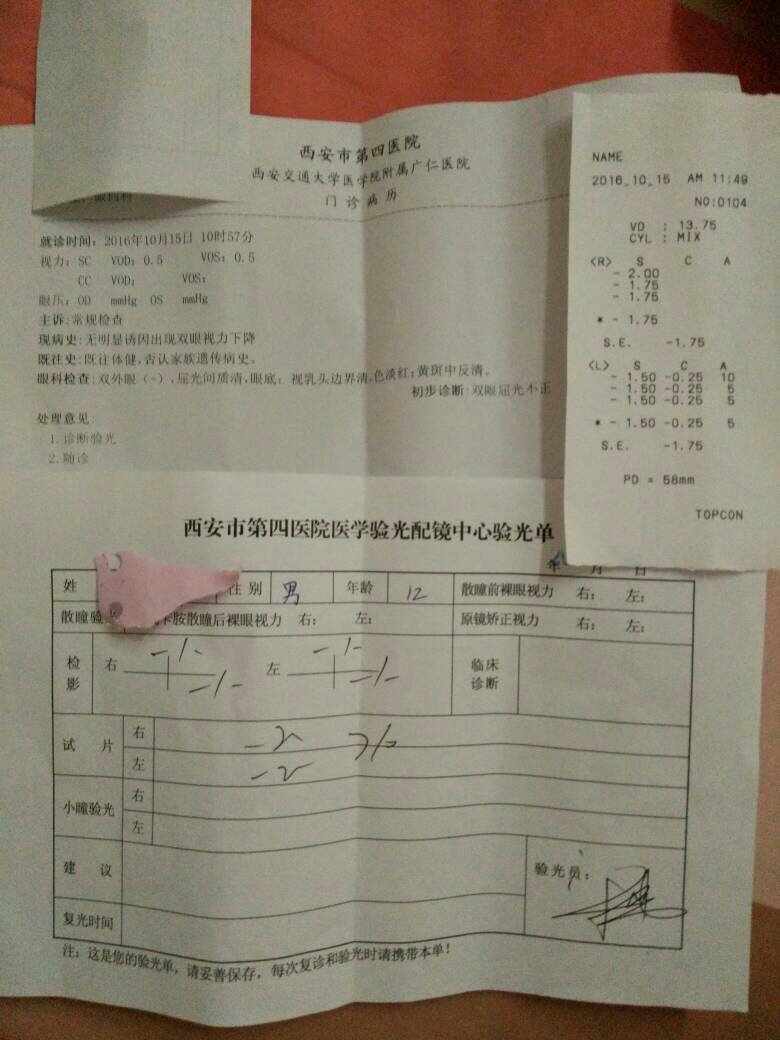 西安市第四医院
西安交通大学医学院附属广仁医院
门诊病历
就诊时间：2016年10月15日 10时57分
视力：SC VOD：0.5 VOS：0.5
CC VOD： VOS：
眼压：OD mmHg OS mmHg
主诉：常规检查
现病史：无明显诱因出现双眼视力下降
既往史：既往体健，否认家族遗传病史。
眼科检查：双外眼（-），屈光间质清，眼底：视乳头边界清，色淡红；黄斑中反清。
初步诊断：双眼屈光不正
处理意见：
1. 诊断验光
2. 随诊
NAME
2016_10_15 AM 11:49
NO:0104
VD : 13.75
CYL : MIX
<R> S C A
- 2.00
- 1.75
- 1.75
* - 1.75
S.E. -1.75
<L> S C A
- 1.50 -0.25 10
- 1.50 -0.25 5
- 1.50 -0.25 5
* - 1.50 -0.25 5
S.E. -1.75
PD = 58mm
TOPCON
西安市第四医院医学验光配镜中心验光单
年 月 日
姓 性别 男 年龄 12 散瞳前裸眼视力 右： 左：
散瞳验 胺散瞳后裸眼视力 右： 左： 原镜矫正视力 右： 左：
检影 右 左 临床诊断
试片 右
左
小瞳验光 右
左
建议
验光员：
复光时间
注：这是您的验光单，请妥善保存，每次复诊和验光时请携带本单！